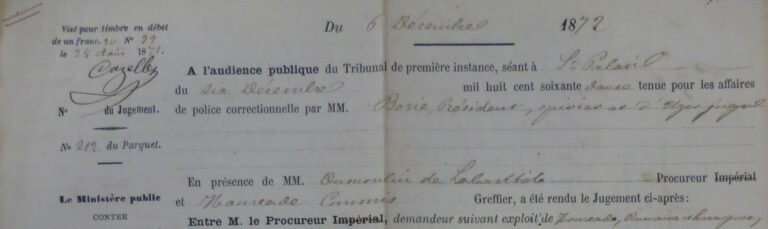 Visé pour timbre en débet
de un franc N° 29
le 28 Août 1871.
Du 6 Décembre 1872
A l'audience publique du Tribunal de première instance, séant à St
du six Décembre mil huit cent soixante douze tenue pour les affaires
N° du Jugement.
de police correctionnelle par MM. Borre, Président,
N° 212 du Parquet.
En présence de MM. Dumoulin de Procureur Impérial
Le Ministère public
et Commis Greffier, a été rendu le Jugement ci-après:
CONTRE
Entre M. le Procureur Impérial, demandeur suivant exploit de